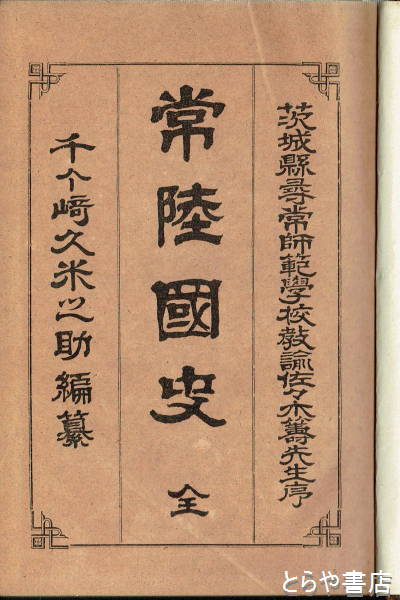 茨城縣尋常師範學校教諭佐々木籌先生序
常陸國史 全
千ヶ﨑久米之助編纂
とらや書店